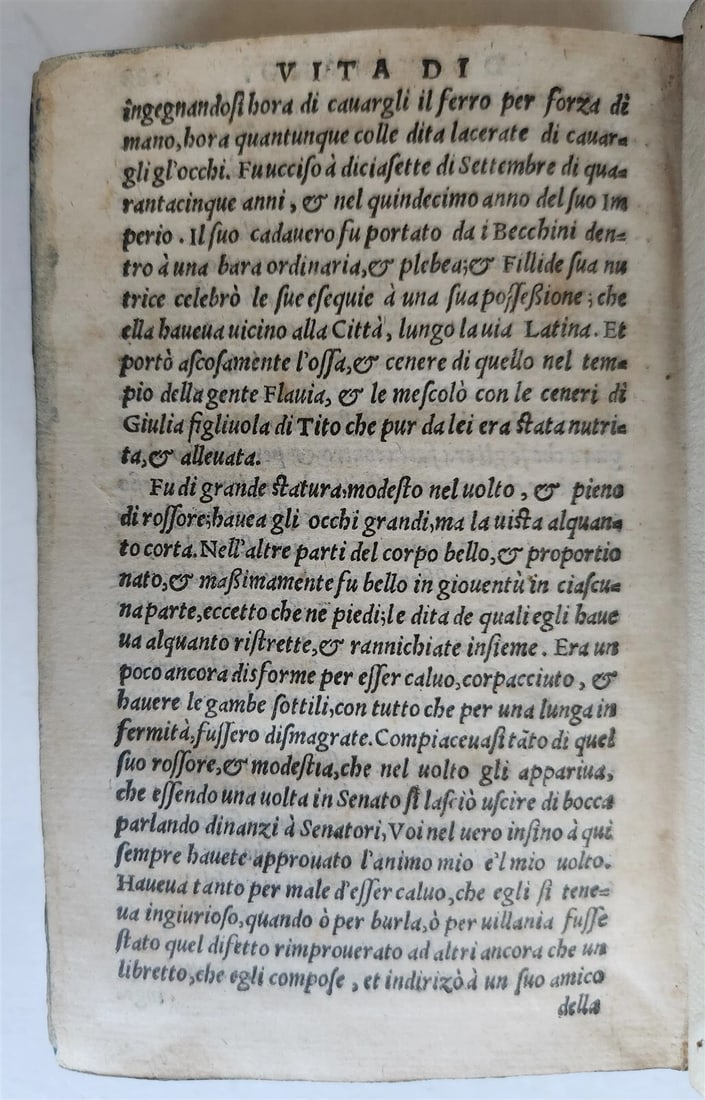 VITA DI
ingegnandoſi hora di cauargli il ferro per forza di
mano, hora quantunque colle dita lacerate di cauar=
gli gl'occhi. Fu ucciſo à diciaſette di Settembre di qua=
rantacinque anni, & nel quindecimo anno del ſuo Im
perio. Il ſuo cadauero fu portato da i Becchini den=
tro à una bara ordinaria, & plebea; & Fillide ſua nu
trice celebrò le ſue eſequie à una ſua poſſeßione; che
ella haueua uicino alla Città, lungo la uia Latina. Et
portò aſcoſamente l'oſſa, & cenere di quello nel tem=
pio della gente Flauia, & le meſcolò con le ceneri di
Giulia figliuola di Tito che pur da lei era ſtata nutri=
ta, & alleuata.
Fu di grande ſtatura; modeſto nel uolto, & pieno
di roſſore; hauea gli occhi grandi, ma la uiſta alquan=
to corta. Nell'altre parti del corpo bello, & proportio
nato, & maßimamente fu bello in giouentù in ciaſcu=
na parte, eccetto che ne piedi; le dita de quali egli haue
ua alquanto riſtrette, & rannichiate inſieme. Era un
poco ancora disforme per eſſer caluo, corpacciuto, &
hauere le gambe ſottili, con tutto che per una lunga in
fermità, fuſſero diſmagrate. Compiaceuaſi tãto di quel
ſuo roſſore, & modeſtia, che nel uolto gli appariua,
che eſſendo una uolta in Senato ſi laſciò uſcire di bocca
parlando dinanzi à Senatori, Voi nel uero inſino à quì
ſempre hauete approuato l'animo mio e'l mio uolto.
Haueua tanto per male d'eſſer caluo, che egli ſi tene=
ua ingiurioſo, quando ò per burla, ò per uillania fuſſe
ſtato quel difetto rimprouerato ad altri ancora che un
libretto, che egli compoſe, et indirizò à un ſuo amico
della